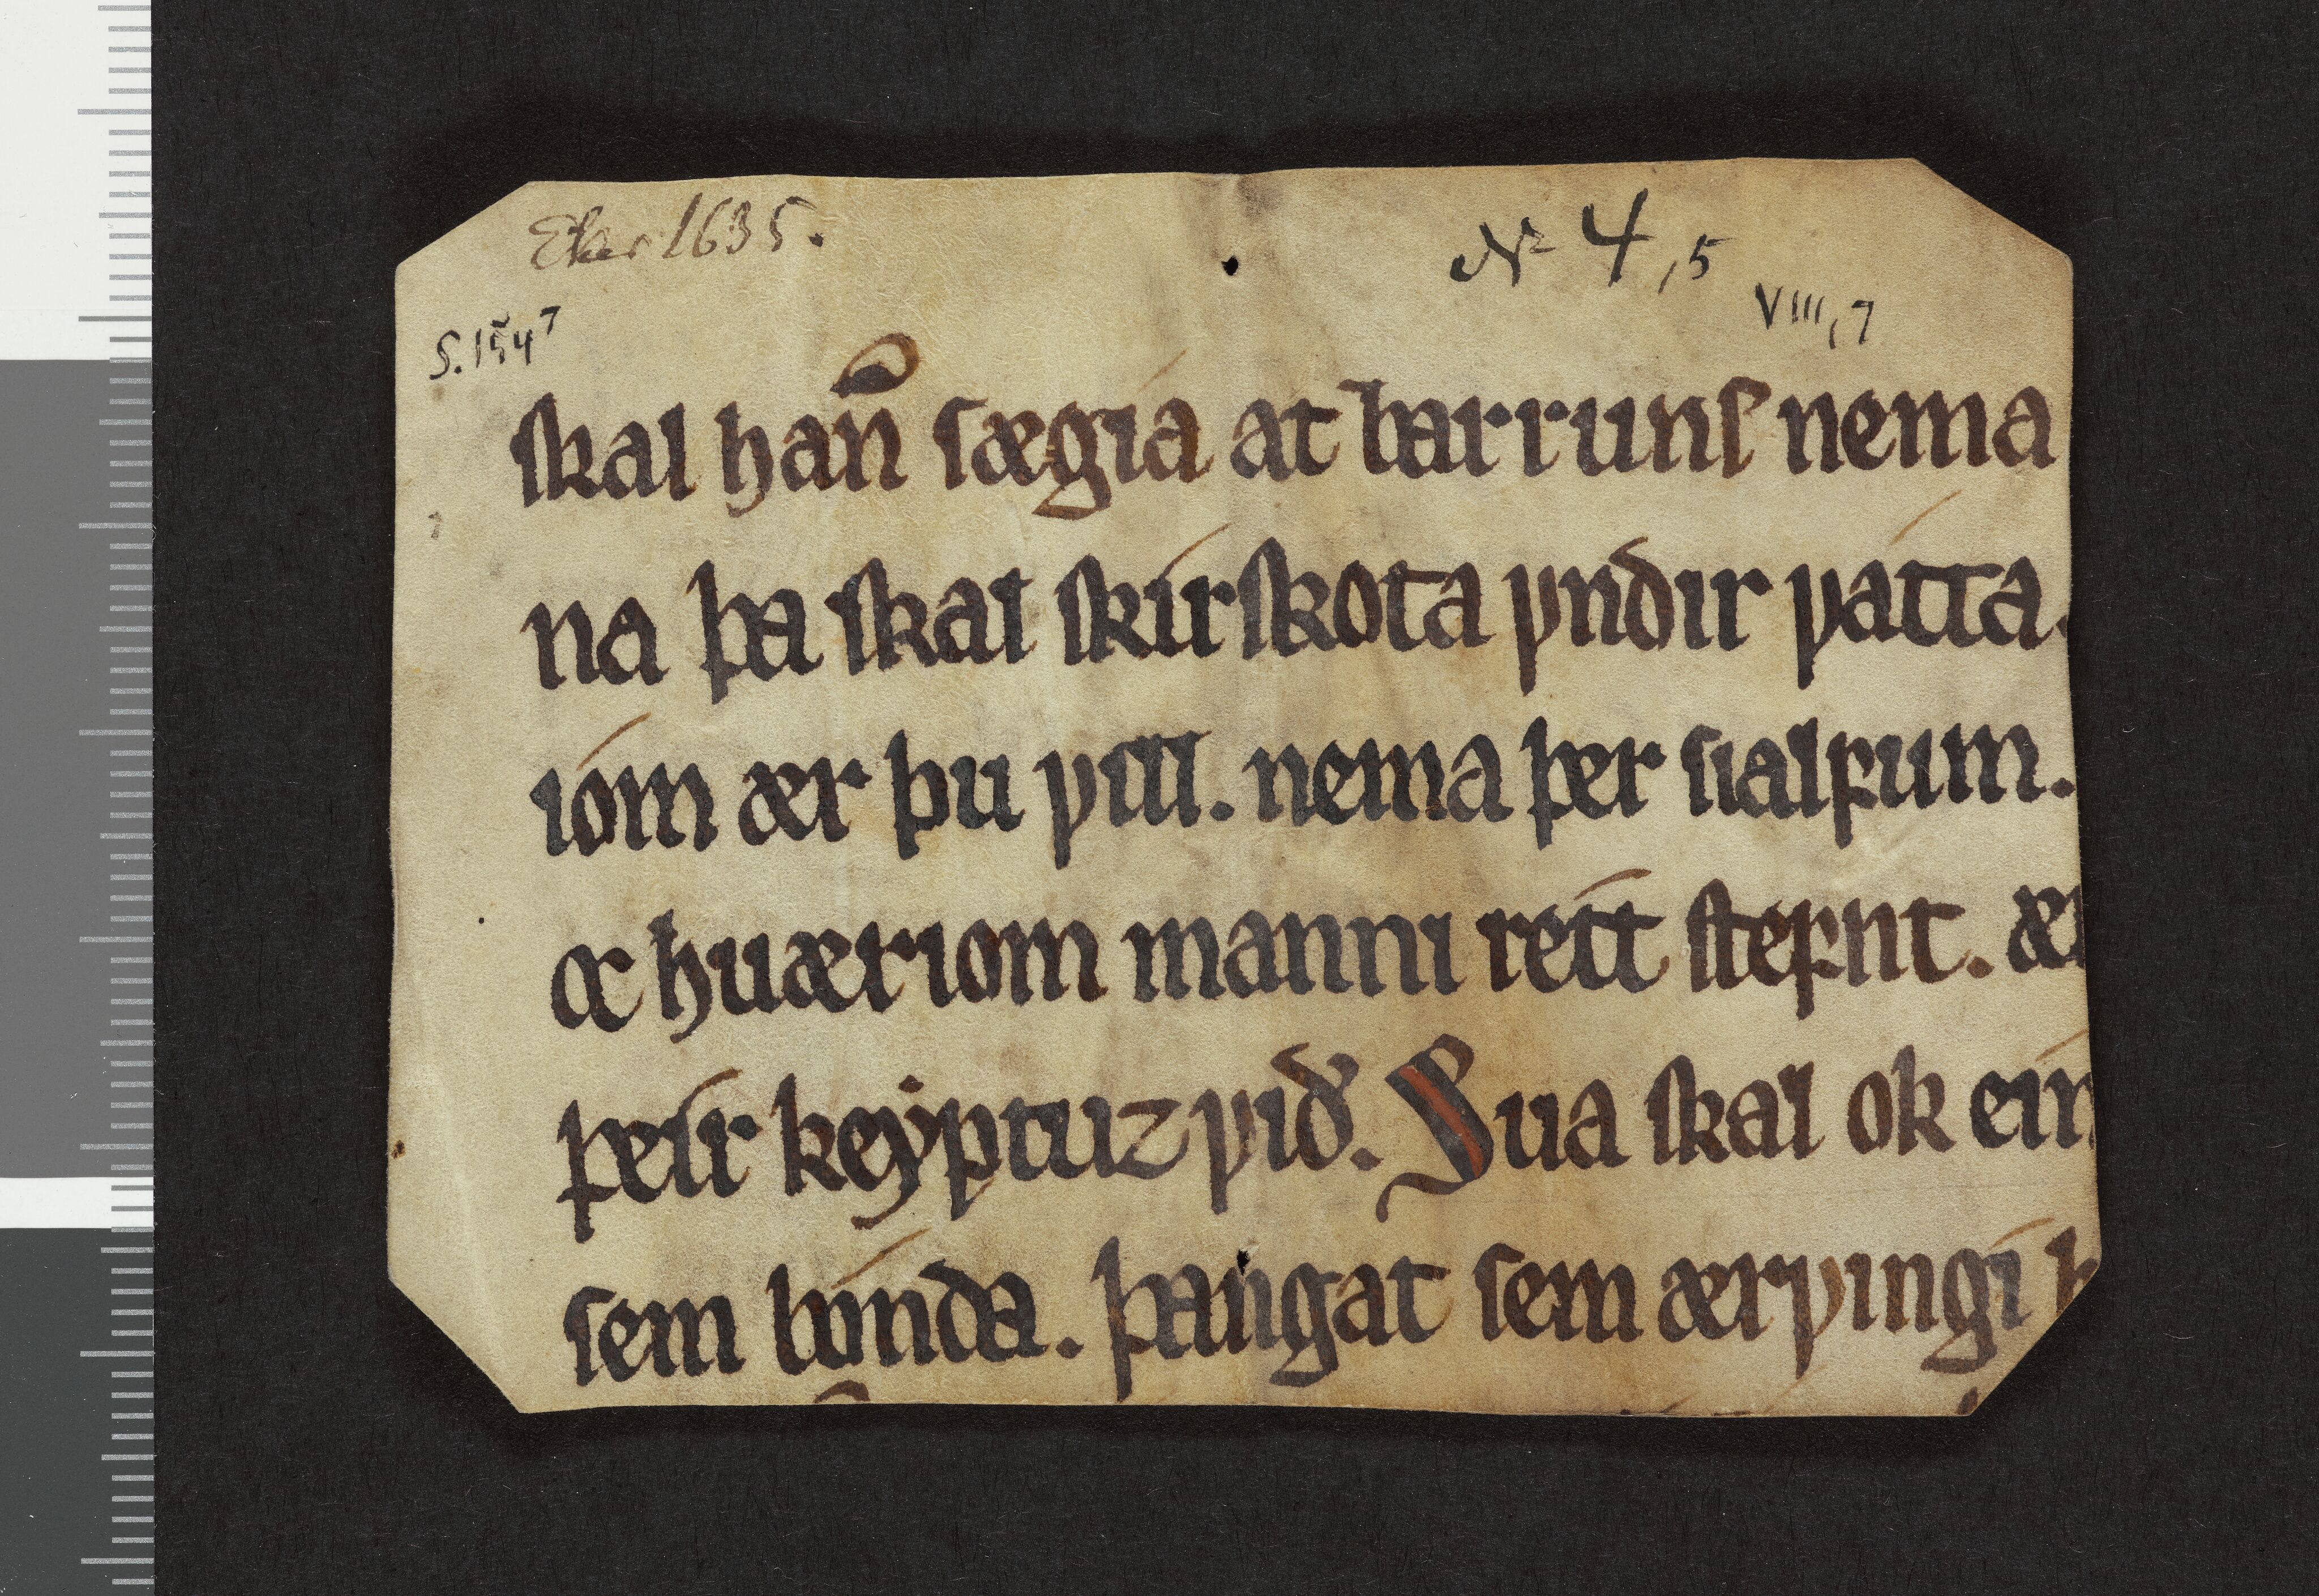 Eker 1635.
Nr 4,5
VIII,7
S. 154⁷
ſkal han̄ ſægia at barrunſ nema
na þa ſkal ſkírſkota ꝩndir ꝩátta.
íom ær þu ꝩill. nema þer ſialꝼum.
oc huæriom manni rétt ſteꝼnt. ær
þeír keẏptuz ꝩið. Sua ſkal ok ein
ſem bónda. þangat ſem ærꝩingí